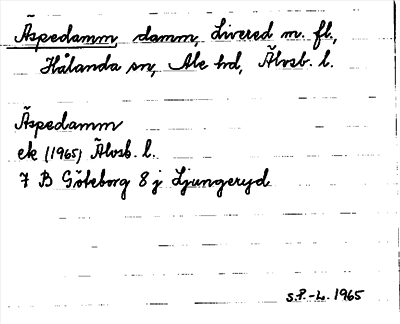 Äspedamm, damm, Livered m. fl.,
Hålanda sn, Ale hd, Älvsb. l.
Äspedamm
ek (1965) Älvsb. l.
7 B Göteborg 8 j Ljungeryd
S.P.-L. 1965